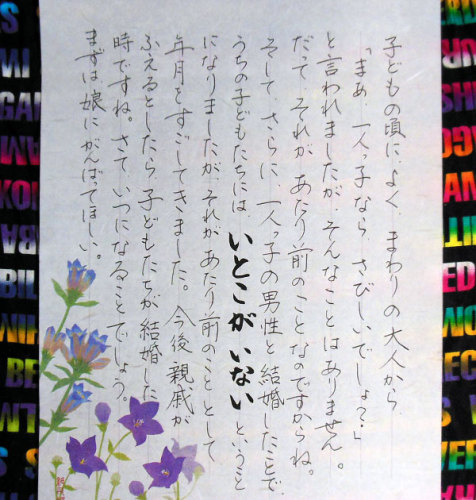 子どもの頃に、よく、まわりの大人から
「まあ、一人っ子なら、さびしいでしょ？」
と言われましたが、そんなことはありません。
だって、それが、あたり前のことなのですからね。
そして、さらに、一人っ子の男性と結婚したことで
うちの子どもたちには、いとこがいないということ
になりましたが、それがあたり前のこととして
年月をすごしてきました。今後、親戚が
ふえるとしたら、子どもたちが結婚した
時ですね。さて、いつになることでしょう。
まずは、娘にがんばってほしい。